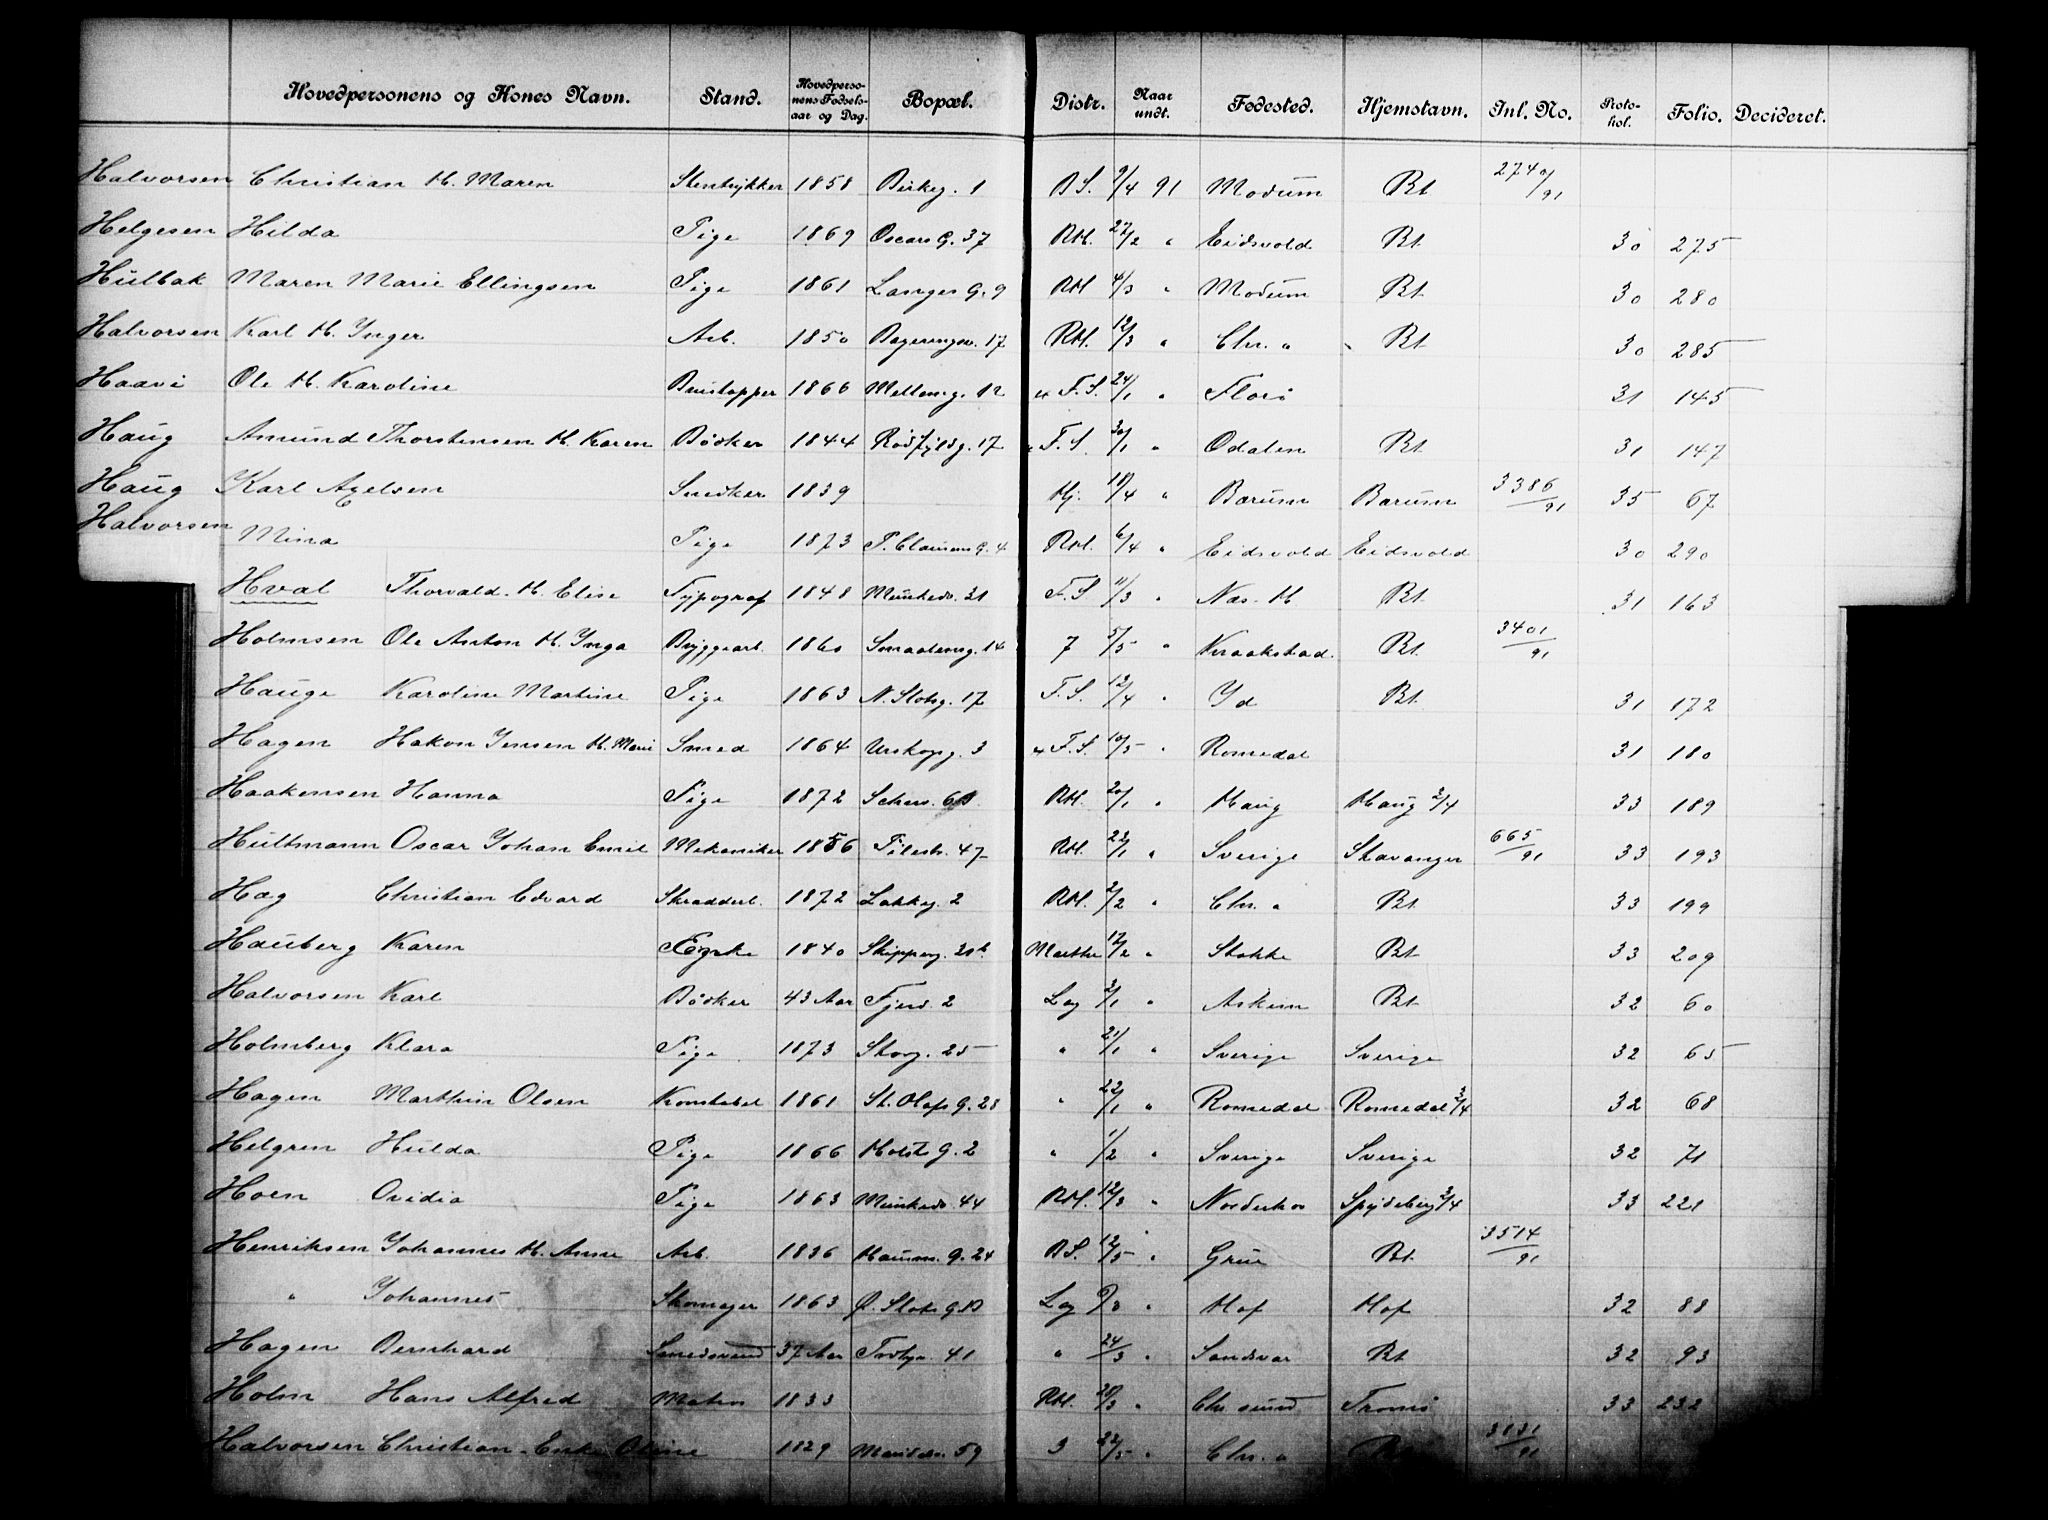 Hovedpersonens og Kones Navn. Stand. Hovedpersonens Fødselsaar og Dag. Bopæl. Distr. Naar undt. Fødested. Hjemstavn. Inl. No. Protokol. Folio. Decideret.
Halvorsen Christian H. Maren Stentrykker 1858 Birkeg. 1 BS. 9/4 91 Modum Bt 2740/91
Helgesen Hilda Pige 1869 Oscars G. 37 RH. 27/2 " Eidsvold Bt 30 275
Hulbak Maren Marie Ellingsen Pige 1861 Langes G. 9 RH 4/3 " Modum Bt 30 280
Halvorsen Karl H. Inger Arb. 1850 17 RH. 12/3 " Chr. a Bt 30 285
Haavi Ole H. Karoline 1866 Mellemg. 12 F.S. 24/1 " Florö 31 145
Haug Amund Thorstensen H. Karen Bödker 1844 Rödfyldg. 17 F.S. 30/1 " Odalen Bt 31 147
Haug Karl Axelsen Snedker 1839 Hj. 18/4 " Bærum Bærum 3386/91 35 67
Halvorsen Mina Pige 1873 P. Clausens G. 4 RH. 6/4 " Eidsvold Eidsvold 30 290
Hval Thorvald H. Elise Typograf 1848 Munkedv. 31 F.S 11/3 " Næs H Bt 31 163
Holmsen Ole Anton H. Inga Bryggearb. 1860 Smaaleneg. 14 7 5/5 " Kraakstad Bt 3401/91
Hauge Karoline Martine Pige 1863 N. Slotsg. 17 F.S. 12/4 " Id Bt 31 172
Hagen Hakon Jensen H. Marie Smed 1864 Urskogg. 3 F.S. 10/5 " Romedal 31 180
Haakensen Hanna Pige 1872 Schws. 6B RH. 20/1 " Haug Haug 2/4 33 189
Hultmann Oscar Johan Emil Mekaniker 1856 Pilestr. 47 RH. 22/1 " Sverige Stavanger 665/91 33 193
Hæg Christian Edvard Skrædderl. 1872 Lakkeg. 2 RH. 2/2 " Chr. a Bt 33 199
Hauberg Karen Enke 1840 Skipperg. 20b Marthe 12/2 " Stokke Bt 33 209
Halvorsen Karl Bödker 43 Aar Fjerd. 2 Lag 2/1 " Askim Bt 32 60
Holmberg Klara Pige 1873 Storg. 25 " 21/1 " Sverige Sverige 32 65
Hagen Marthin Olsen Konstabel 1861 St. Olafs G. 23 " 22/1 " Romedal Romedal 3/4 32 68
Helgren Hulda Pige 1866 Holst G. 2 " 1/2 " Sverige Sverige 32 71
Hoen Ovidia Pige 1863 Munkedv. 44 RH. 12/3 " Norderhov Spydeberg 3/4 33 221
Henriksen Johannes H. Anne Arb. 1836 Hausm. G. 24 BS. 12/5 " Grue Bt 3514/91
" Johannes Skomager 1863 Ø. Slots G. Lag 9/3 " Hof Hof 32 88
Hagen Bernhard Smedsvend 37 Aar 41 " 24/3 " Sandsvær Bt 32 93
Holm Hans Alfred Matros 1833 RH. 20/3 " Chr sund Tromsö 33 232
Halvorsen Christian Enke Oline 1829 Maridv. 59 3 22/5 " Chr. a Bt 3131/91